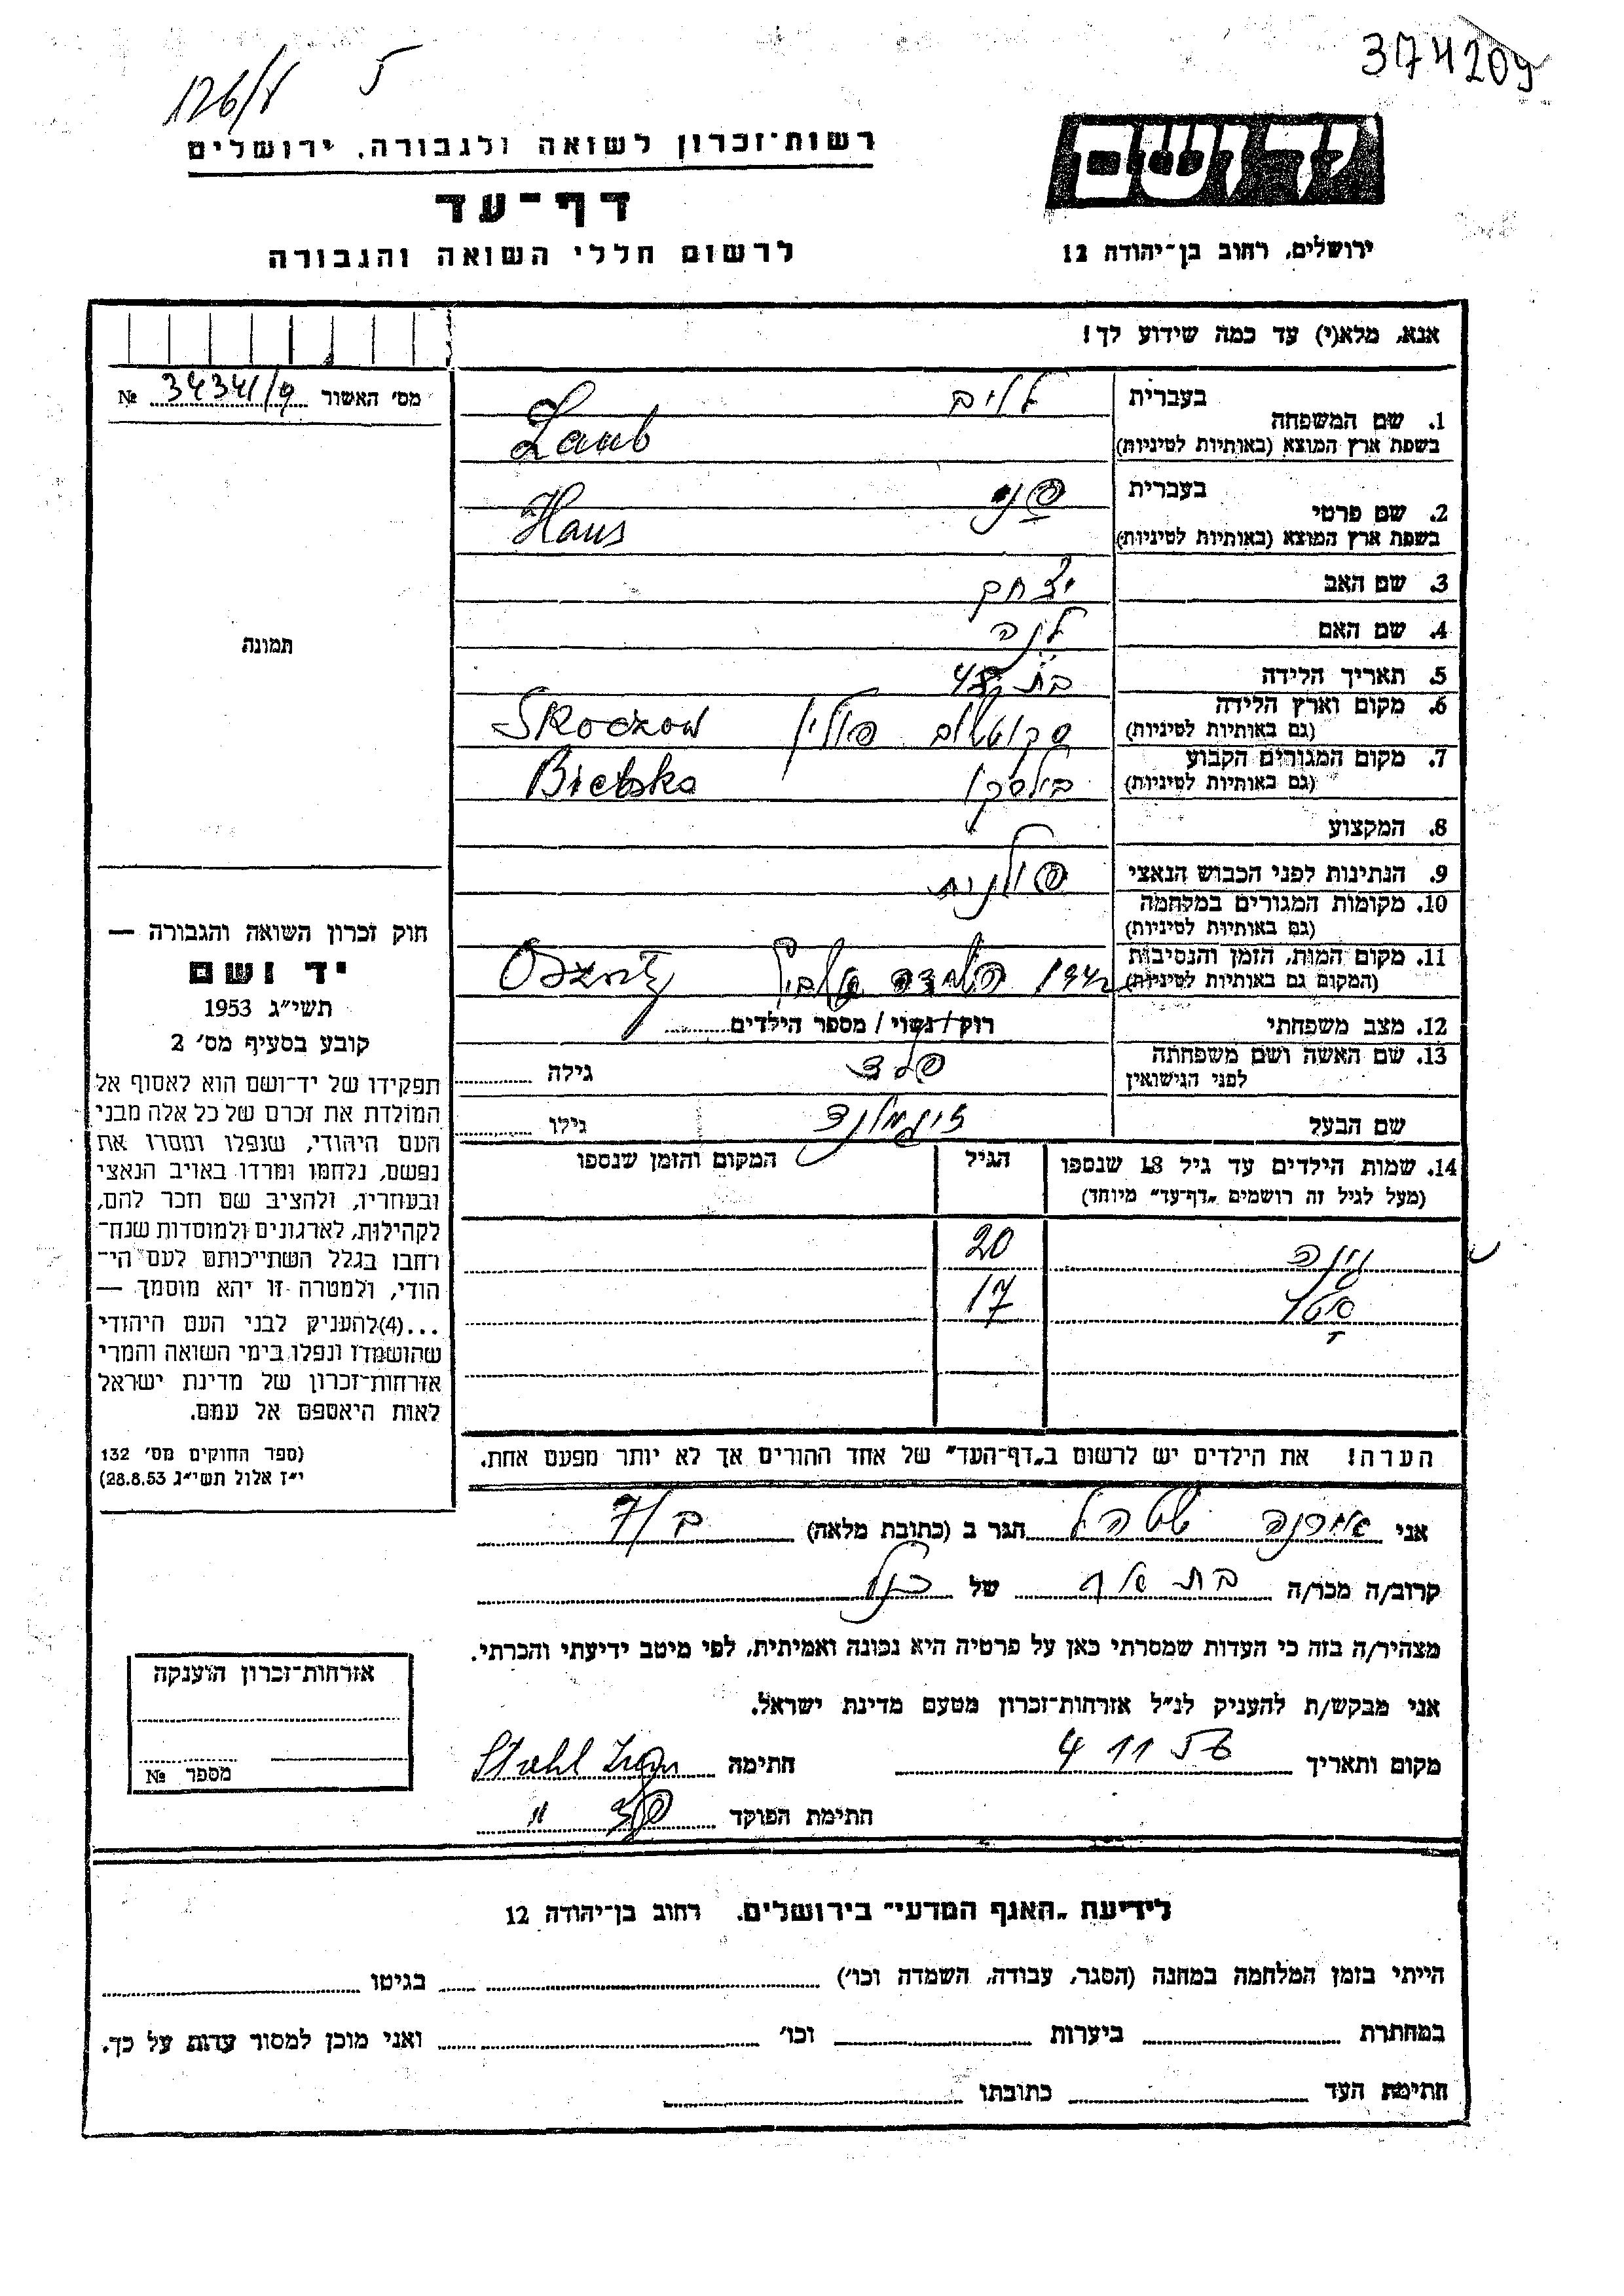 374209
126/ע 5
יד ושם
רשות־זכרון לשואה ולגבורה, ירושלים
דף־עד
לרשום חללי השואה והגבורה
ירושלים, רחוב בן־יהודה 12
אנא, מלא(י) עד כמה שידוע לך!
מס' האשור 34341/9 №
תמונה
1. שם המשפחה
בעברית לויב
בשפת ארץ המוצא (באותיות לטיניות) Laub
2. שם פרטי
בעברית פני
בשפת ארץ המוצא (באותיות לטיניות) Haus
3. שם האב יצחק
4. שם האם לנה
5. תאריך הלידה בת 48
6. מקום וארץ הלידה
(גם באותיות לטיניות) סקוטשוב פולין Skoczow
7. מקום המגורים הקבוע
(גם באותיות לטיניות) בילסקו Bielsko
8. המקצוע
9. הנתינות לפני הכבוש הנאצי פולנית
10. מקומות המגורים במלחמה
(גם באותיות לטיניות)
11. מקום המות, הזמן והנסיבות
(המקום גם באותיות לטיניות) 1942
12. מצב משפחתי רוק / נשוי / מספר הילדים
13. שם האשה ושם משפחתה
לפני הנישואין גילה
שם הבעל זיגמונד גילו
14. שמות הילדים עד גיל 18 שנספו הגיל המקום והזמן שנספו
(מעל לגיל זה רושמים „דף־עד” מיוחד)
20
17
הערה! את הילדים יש לרשום ב„דף־העד” של אחד ההורים אך לא יותר מפעם אחת.
חוק זכרון השואה והגבורה —
יד ושם
תשי״ג 1953
קובע בסעיף מס' 2
תפקידו של יד־ושם הוא לאסוף אל
המולדת את זכרם של כל אלה מבני
העם היהודי, שנפלו ומסרו את
נפשם, נלחמו ומרדו באויב הנאצי
ובעוזריו, ולהציב שם וזכר להם,
לקהילות, לארגונים ולמוסדות שנח־
רבו בגלל השתייכותם לעם הי־
הודי, ולמטרה זו יהא מוסמך —
...(4)להעניק לבני העם היהודי
שהושמדו ונפלו בימי השואה והמרי
אזרחות־זכרון של מדינת ישראל
לאות היאספם אל עמם.
(ספר החוקים מס' 132
י״ז אלול תשי״ג 28.8.53)
אני אירנה שטהל הגר ב (כתובת מלאה)
קרוב/ה מכר/ה בת אח של הנ״ל
מצהיר/ה בזה כי העדות שמסרתי כאן על פרטיה היא נכונה ואמיתית, לפי מיטב ידיעתי והכרתי.
אני מבקש/ת להעניק לנ״ל אזרחות־זכרון מטעם מדינת ישראל.
מקום ותאריך 4 11 55 חתימה Stahl
חתימת הפוקד
אזרחות־זכרון הוענקה
מספר №
לידיעת „האגף המדעי” בירושלים, רחוב בן־יהודה 12
הייתי בזמן המלחמה במחנה (הסגר, עבודה, השמדה וכו') בגיטו
במחתרת ביערות וכו' ואני מוכן למסור עדות על כך.
חתימת העד כתובתו